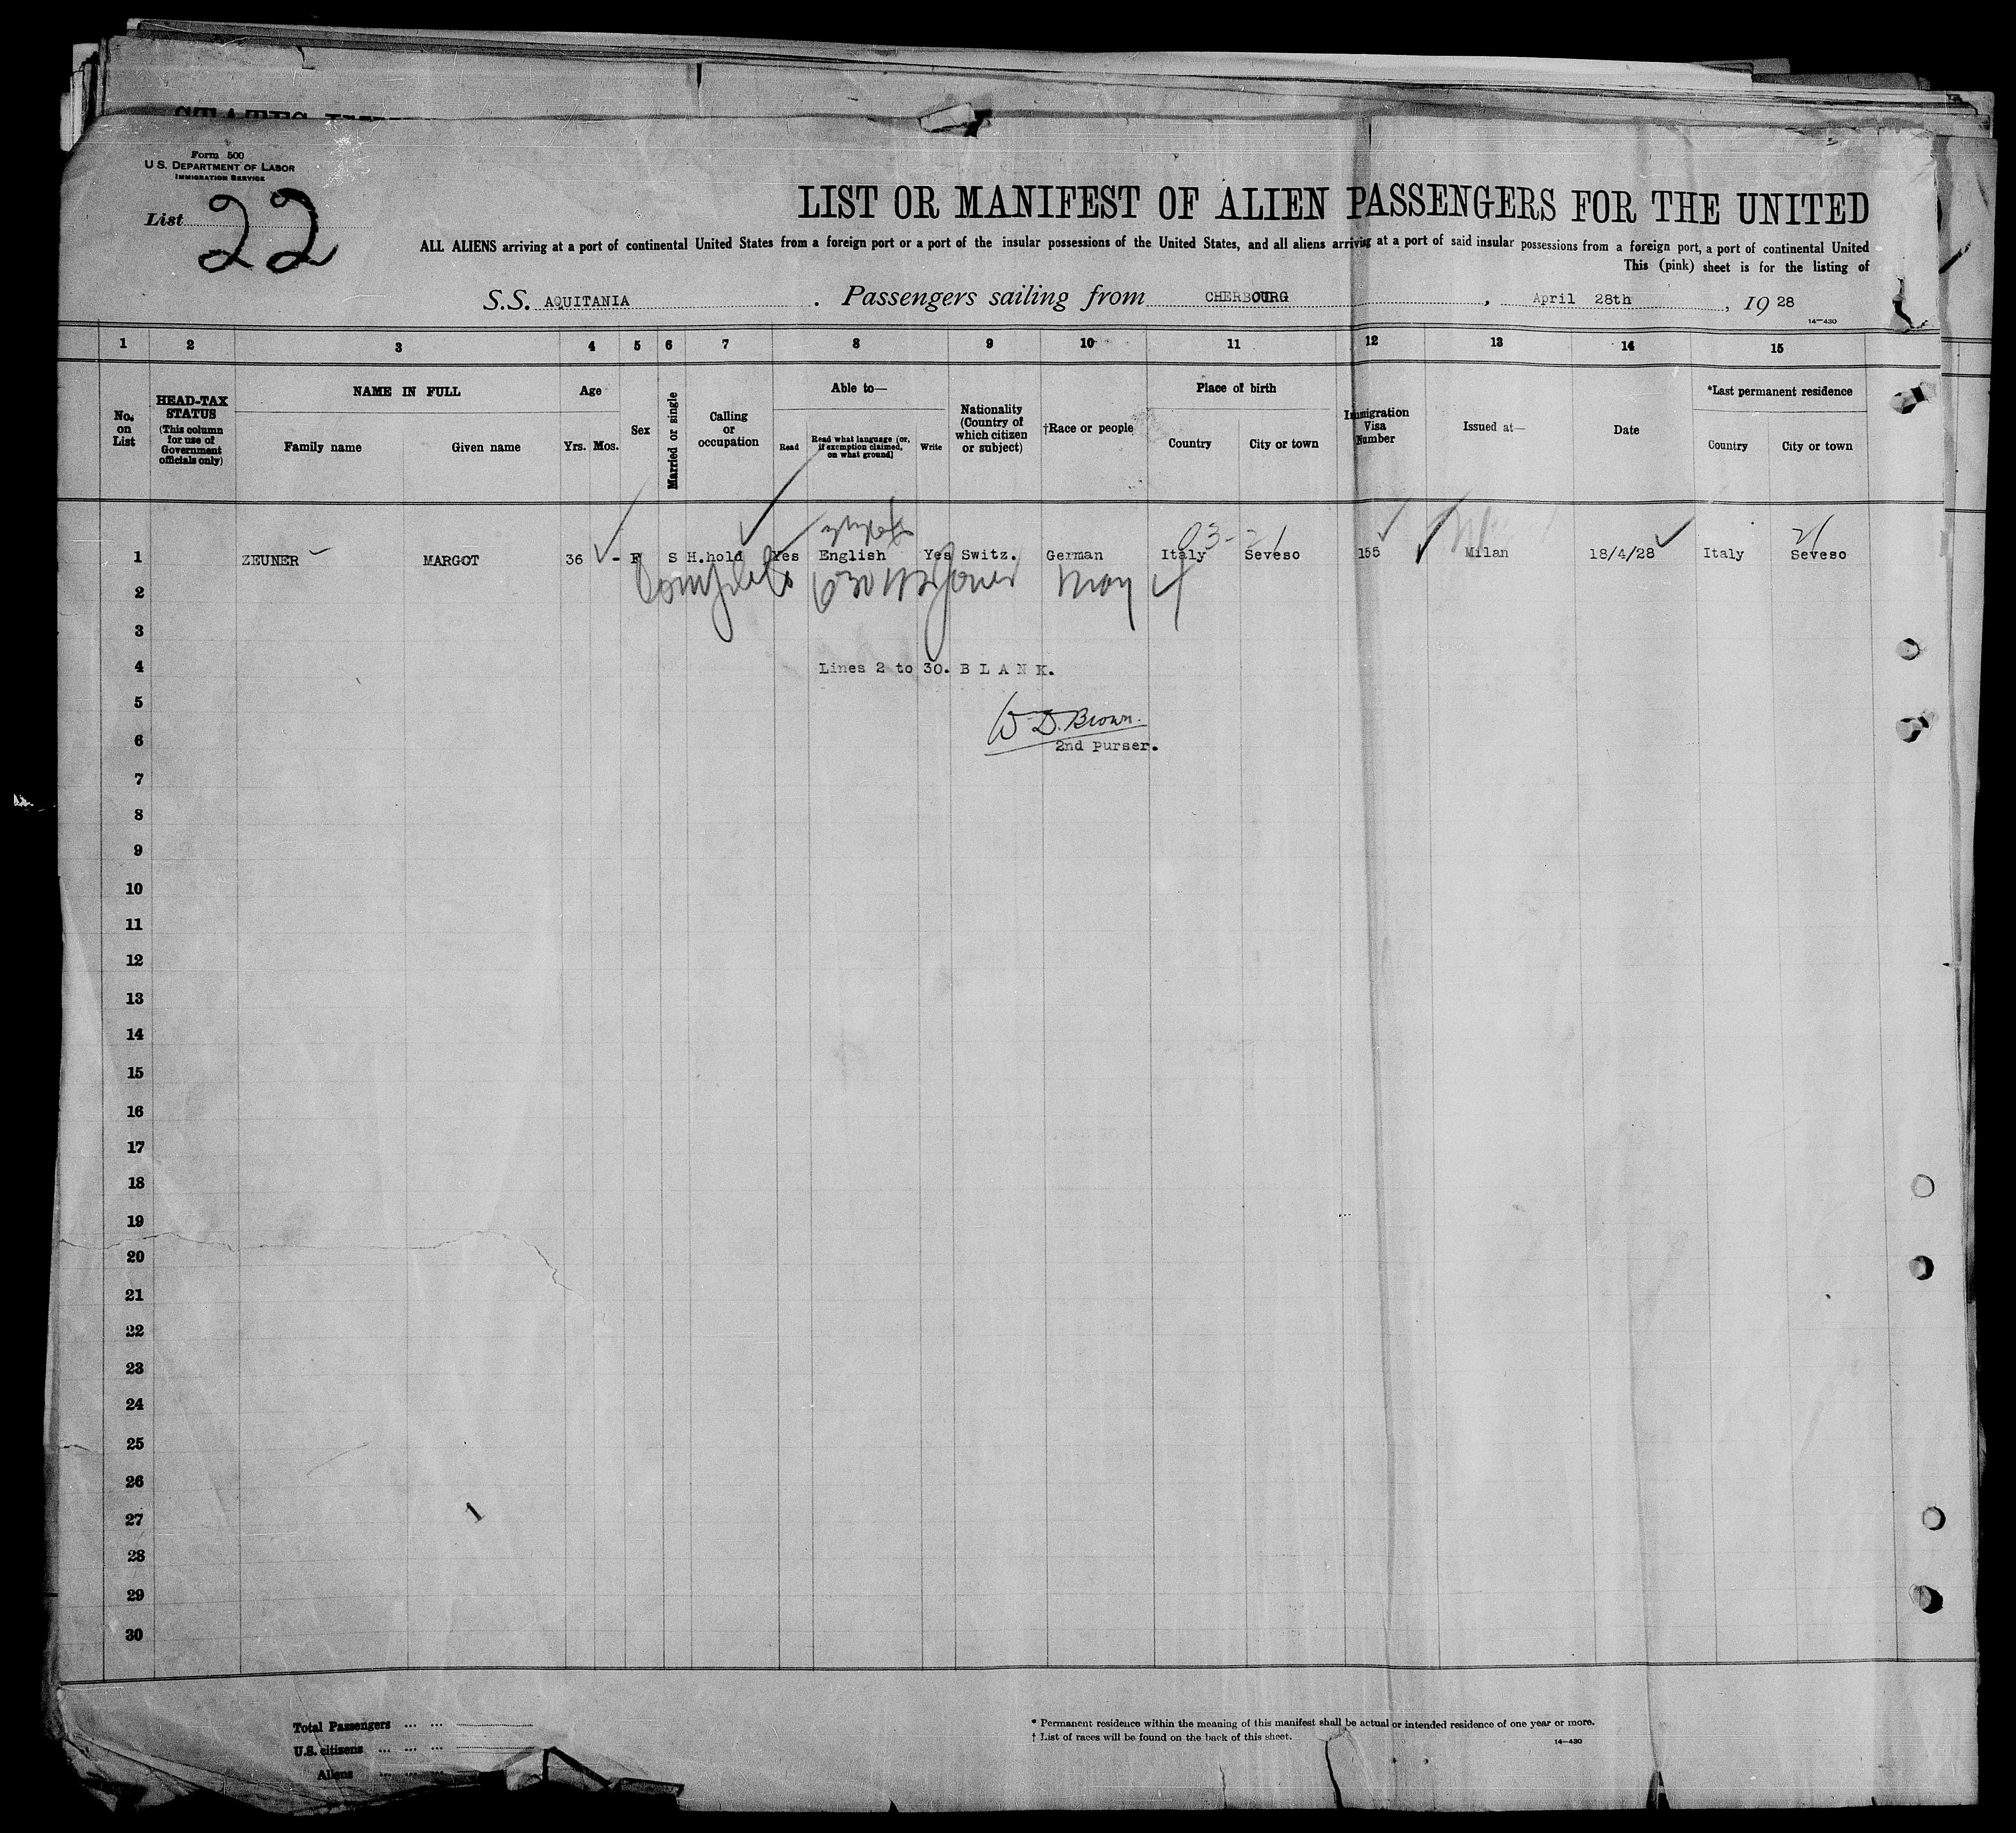 Form 500
U.S. DEPARTMENT OF LABOR
IMMIGRATION SERVICE
List 22
LIST OR MANIFEST OF ALIEN PASSENGERS FOR THE UNITED
ALL ALIENS arriving at a port of continental United States from a foreign port or a port of the insular possessions of the United States, and all aliens arriving at a port of said insular possessions from a foreign port, a port of continental United
This (pink) sheet is for the listing of
S.S. AQUITANIA . Passengers sailing from CHERBOURG , April 28th , 19 28
14—430
1 2 3 4 5 6 7 8 9 10 11 12 13 14 15
No. on List
HEAD-TAX STATUS (This column for use of Government officials only)
NAME IN FULL
Family name Given name
Age
Yrs. Mos.
Sex
Married or single
Calling or occupation
Able to—
Read Read what language (or, if exemption claimed, on what ground) Write
Nationality (Country of which citizen or subject)
†Race or people
Place of birth
Country City or town
Immigration Visa Number
Issued at—
Date
*Last permanent residence
Country City or town
03- 21 21
1 ZEUNER MARGOT 36 - F S H.hold Yes English Yes Switz. German Italy Seveso 155 Milan 18/4/28 Italy Seveso
Complete May 4
2
3
4 Lines 2 to 30. B L A N K.
5 W D. Brown.
6 2nd Purser.
7
8
9
10
11
12
13
14
15
16
17
18
19
20
21
22
23
24
25
26
27
28
29
30
Total Passengers ... ...
U.S. citizens ... ... ...
Aliens ... ... ...
* Permanent residence within the meaning of this manifest shall be actual or intended residence of one year or more.
† List of races will be found on the back of this sheet.
14—430